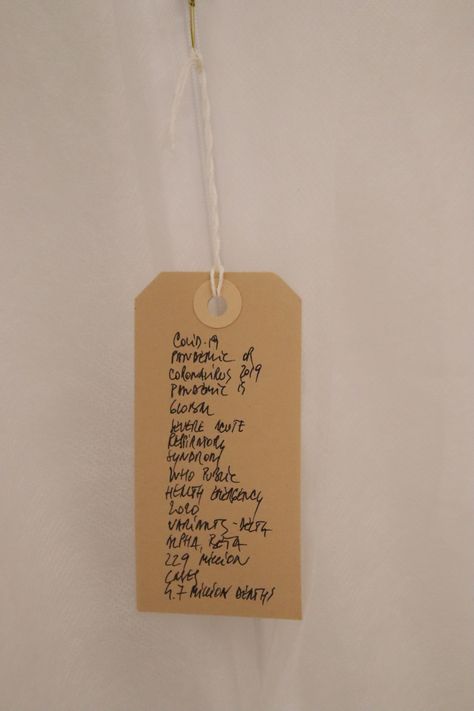 COVID-19
PANDEMIC OR
CORONAVIRUS 2019
PANDEMIC IS
GLOBAL
SEVERE ACUTE
RESPIRATORY
SYNDROM
WHO PUBLIC
HEALTH EMERGENCY
2020
VARIANTS - DELTA
ALPHA, BETA
229 MILLION
CASES
4.7 MILLION DEATHS